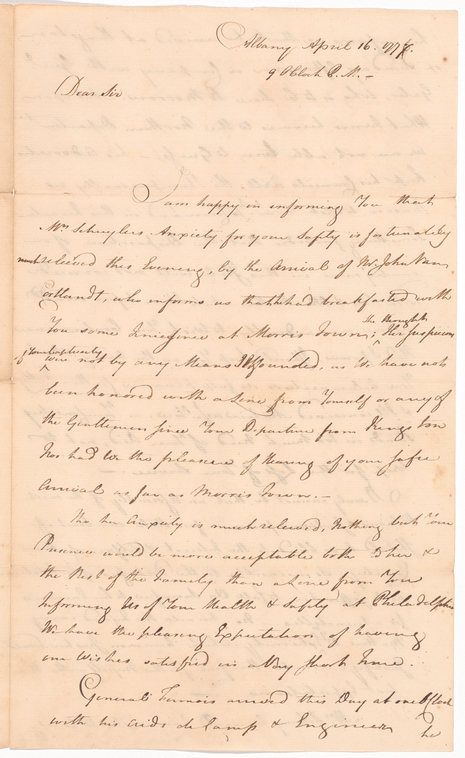 Albany April 16. 1777.
9 OClock P.M. –
Dear Sir
I am happy in informing You that
Mrs Schuylers Anxiety for your Safty is fortunately
much releived this Evening, by the Arrival of Mr. John Van
Cortlandt, who informs us that he had breakfasted with
You some time since at Morris Town; tho thoughts Her suspicions
of Your Captivity were not by any Means Ill founded, as We have not
been honored with a Line from Yourself or any of
the Gentlemen since Your Departure from Kingston
Nor had We the pleasure of Hearing of your safe
Arrival as far as Morris Town. –
Tho her Anxiety is much releived, Nothing but Your
Presence could be more acceptable both to her &
the Rest of the Family than a Line from You
Informing Us of Your Health & Safty at Philadelphia
We have the pleasing Expectation of having
our Wishes satisfied in a Very Short Time.
General arrived this Day at one OClock
with his Aids de Camp & Engineer
he